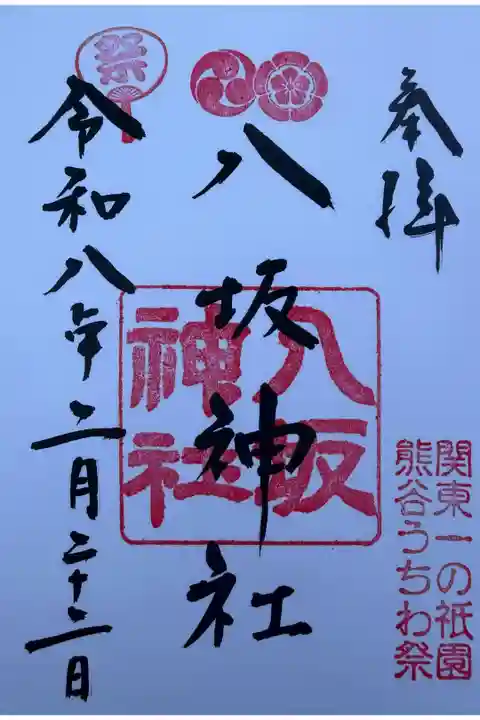 奉拝
関東一の祇園
熊谷うちわ祭
八坂神社
八坂
神社
祭
令和八年二月二十二日